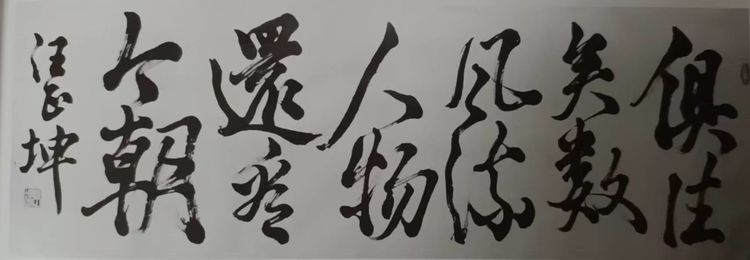 俱往
矣数
风流
人物
還看
今朝
汪正坤